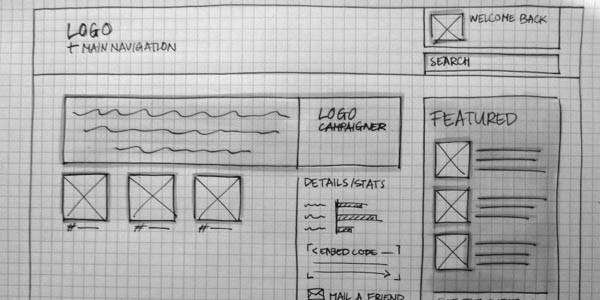 LOGO
+ MAIN NAVIGATION
WELCOME BACK
SEARCH
LOGO
CAMPAIGNER
FEATURED
DETAILS/STATS
#
#
#
<EMBED CODE
MAIL A FRIEND